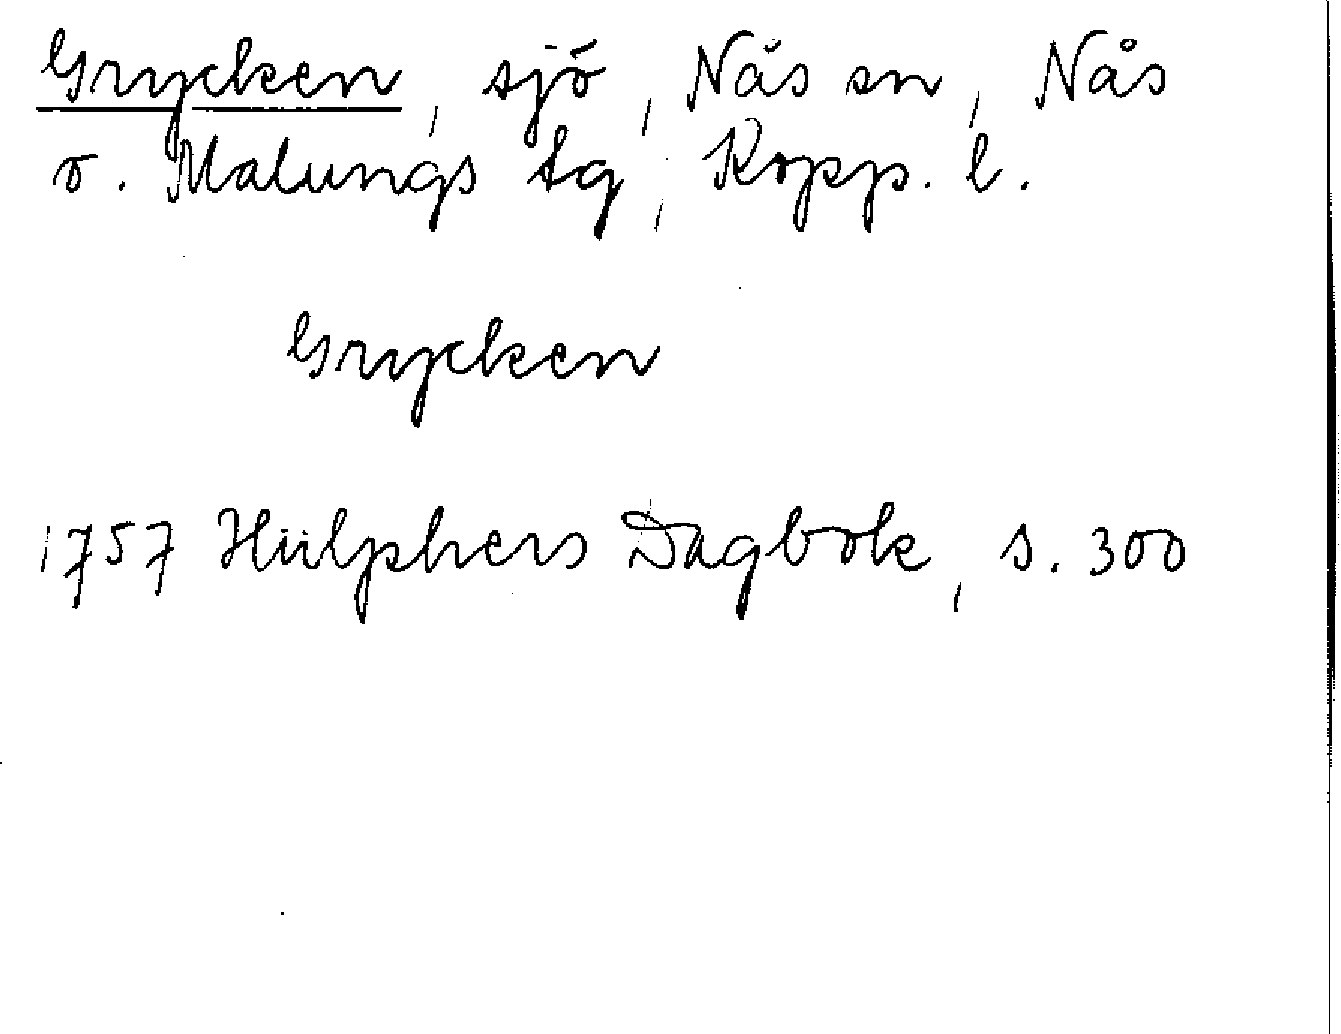 Grycken, sjö, Nås sn, Nås
o. Malungs tg, Kopp. l.
Grycken
1757 Hülphers Dagbok, s. 300